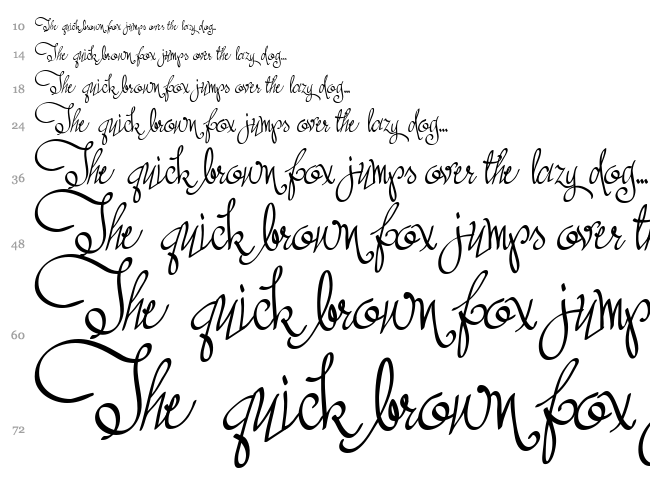 10 The quick brown fox jumps over the lazy dog...
14 The quick brown fox jumps over the lazy dog...
18 The quick brown fox jumps over the lazy dog...
24 The quick brown fox jumps over the lazy dog...
36 The quick brown fox jumps over the lazy dog...
48 The quick brown fox jumps over t
60 The quick brown fox jump
72 The quick brown fox j